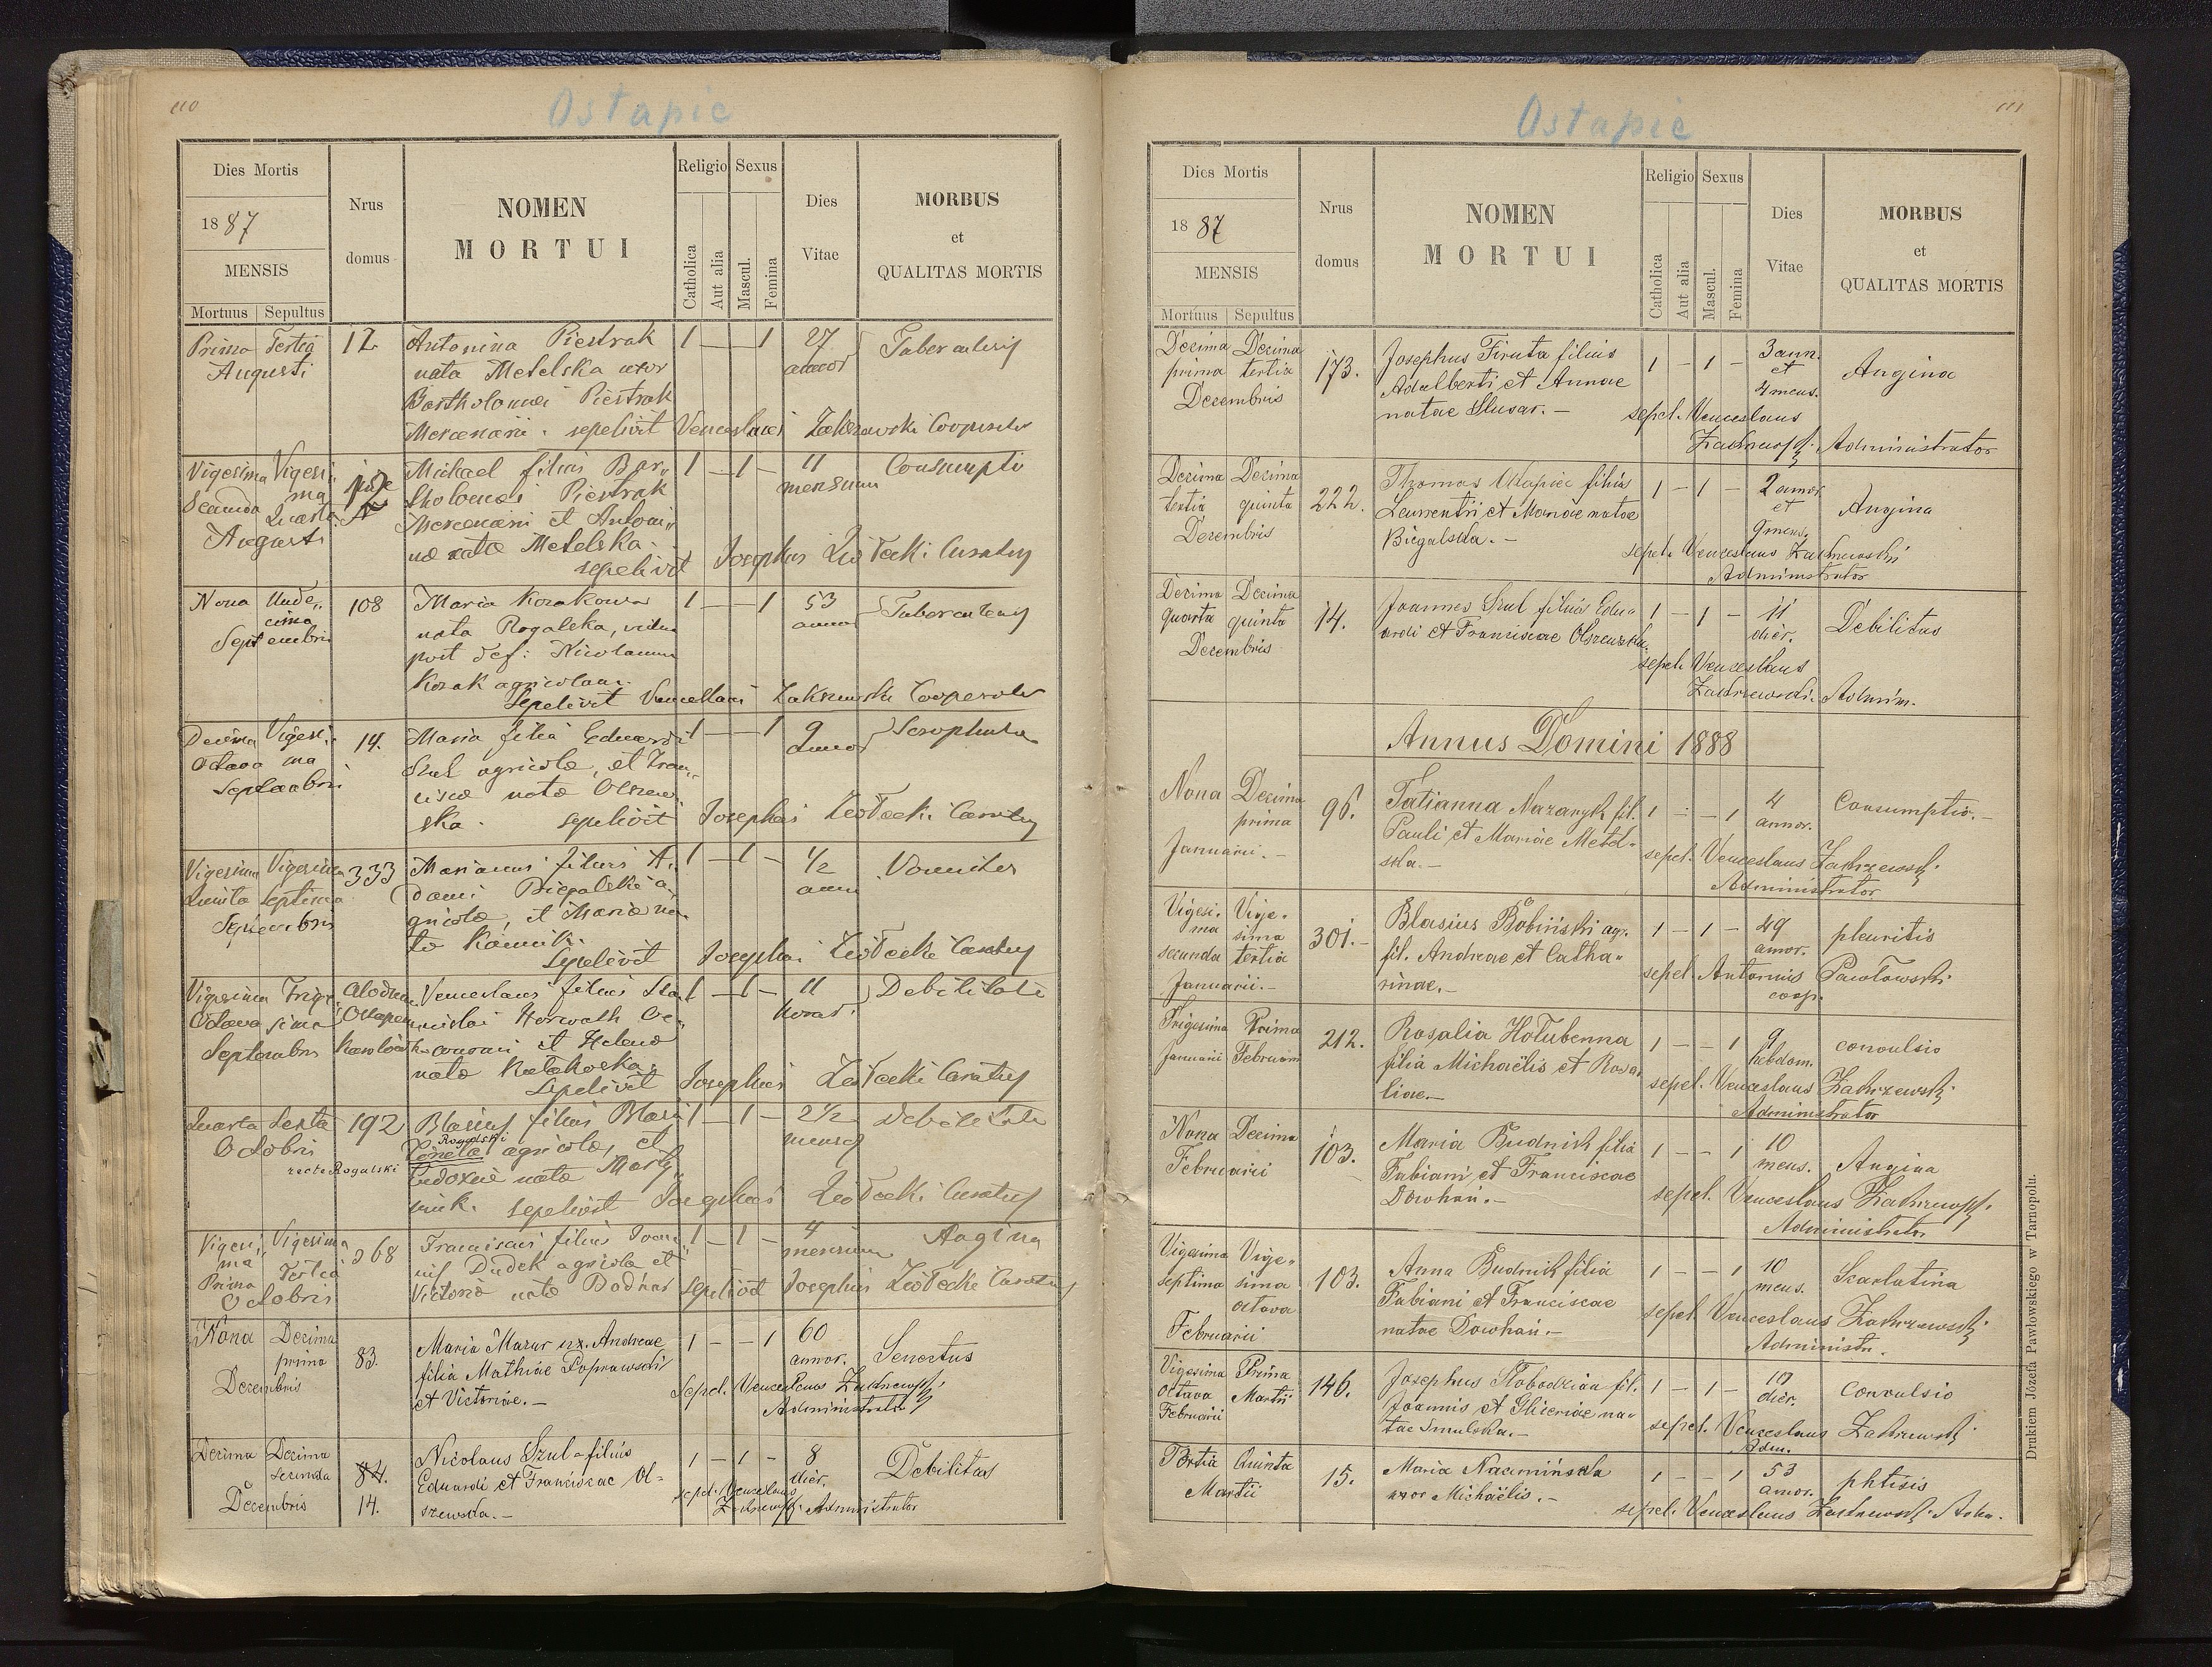 110
Ostapie
Dies Mortis
1887
MENSIS
Mortuus Sepultus
Nrus domus
NOMEN
MORTUI
Religio
Catholica
Aut alia
Sexus
Mascul.
Femina
Dies
Vitae
MORBUS
et
QUALITAS MORTIS
Prima Tertia 12 Antonina Piestrak 1 — — 1 27 Tuberculosis
Augusti nata Metelska uxor annor
Bartholomei Piestrak
Mercenarii. sepelivit Venceslaus Zakrzewski Cooperator
Vigesima Vigesi- Michael filius Bar- 1 — 1 — 11 Consumptio
Secunda ma tholomei Piestrak mensium
Quarta Mercenarii et Antoni-
Augusti nae nata Metelska.
sepelivit Josephus Curatus
Nona Unde- 108 Maria Kozakowa 1 — — 1 53 Tuberculosis
cima nata Rogalska, vidua annor
Septembris post def: Nicolaum
Kozak agricolam.
Sepelivit Venceslaus Zakrzewski Cooperator
Decima Vigesi- 14. Maria filia Eduardi 1 — — 1 9 Scrophula
Octava ma Szul agricola, et Fran- annor
Septembris cisca nata Olszew-
ska. sepelivit Josephus Curatus
Vigesima Vigesima 333 Marianus filius A- 1 — 1 — 1/2 Vomitus
Quinta Septima dami Biegalski a- anni
Septembris gricola, et Maria na-
ta
Sepelivit Josephus Curatus
Vigesima Trige- Venceslaus filius Sta- 1 — 1 — 11 Debilitate
Octava sima nislai Horwath horas
Septembris et Helena
nata
Sepelivit Josephus Curatus
Quarta Sexta 192 Blasius filius Blasii 1 — 1 — 2 1/2 Debilitate
Octobris Rogalski
agricola, et menses
recte Rogalski Eudoxiae nata Marty-
niuk. sepelivit Josephus Curatus
Vigesi- Vigesima 268 Franciscus filius Joan- 1 — 1 — 4 Angina
ma Tertia nis Dudek agricola et mensium
Prima Victoria nata Bodnar sepelivit Josephus Curatus
Octobris
Nona Decima 83. Maria Mazur ux. Andreae 1 — — 1 60 Senectus
prima filia Mathiae Poprawski annor.
Decembris et Victoriae.— Sepel. Venceslaus Zakrzewski
Administrator
Decima Decima 84. Nicolaus Szul filius 1 — 1 — 8 Debilitas
secunda Eduardi et Franciscae Ol- dier.
Decembris 14. szewska.— sepel. Venceslaus
Zakrzewski Administrator
111
Ostapie
Dies Mortis
1887
MENSIS
Mortuus Sepultus
Nrus
domus
NOMEN
MORTUI
Religio
Catholica
Aut alia
Sexus
Mascul.
Femina
Dies
Vitae
MORBUS
et
QUALITAS MORTIS
Decima Decima 173. Josephus Firuta filius 1 — 1 — 3 ann. Angina
prima tertia Adalberti et Annae et
Decembris natae Slusar.— 4 mens.
sepel. Venceslaus
Zakrzewski Administrator
Decima Decima 222. Thomas filius 1 — 1 — 2 annor. Angina
tertia quinta Laurentii et Mariae natae et
Decembris Biegalska.— 9 mens.
sepel. Venceslaus Zakrzewski
Administrator
Decima Decima 14. Joannes Szul filius Edu- 1 — 1 — 11 Debilitas
quarta quinta ardi et Franciscae Olszewska dier.
Decembris sepel. Venceslaus
Zakrzewski. Admin.
Annus Domini 1888
Nona Decima 96. Tatianna Nazaruk fil. 1 — — 1 4 Consumptio.—
prima Pauli et Mariae Metel- annor.
Januarii.— ska.— sepel. Venceslaus Zakrzewski
Administrator
Vigesi- Vige- 301.— Blasius Bobiński agr. 1 — 1 — 49 pleuritis
ma sima fil. Andreae et Catha- annor.
secunda tertia rinae.— sepel. Antonius Pawłowski
Januarii.— coop.
Trigesima Prima 212. Rosalia Hołubenna 1 — — 1 9 convulsio
Januarii Februarii filia Michaëlis et Rosa- hebdom.
liae.— sepel. Venceslaus Zakrzewski
Administrator
Nona Decima 103. Maria Budnik filia 1 — — 1 10 Angina
Februarii Fabiani et Franciscae mens.
Dowhań.— sepel. Venceslaus Zakrzewski.
Administrator
Vigesima Vige- 103. Anna Budnik filia 1 — — 1 10 Scarlatina
septima sima Fabiani et Franciscae mens.
octava natae Dowhań.— sepel. Venceslaus Zakrzewski
Februarii Administr.
Vigesima Prima 146. Josephus Słobodzian fil. 1 — 1 — dier. Convulsio
Octava Martii Joannis et Gliceriae na-
Februarii tae Smulska.— sepel. Venceslaus Zakrzewski
Adm.
Tertia Quinta 15. Maria Naumińska 1 — — 1 53 phtisis
Martii uxor Michaëlis.— annor.
sepel. Venceslaus Zakrzewski. Adm.
Drukiem Józefa Pawłowskiego w Tarnopolu.